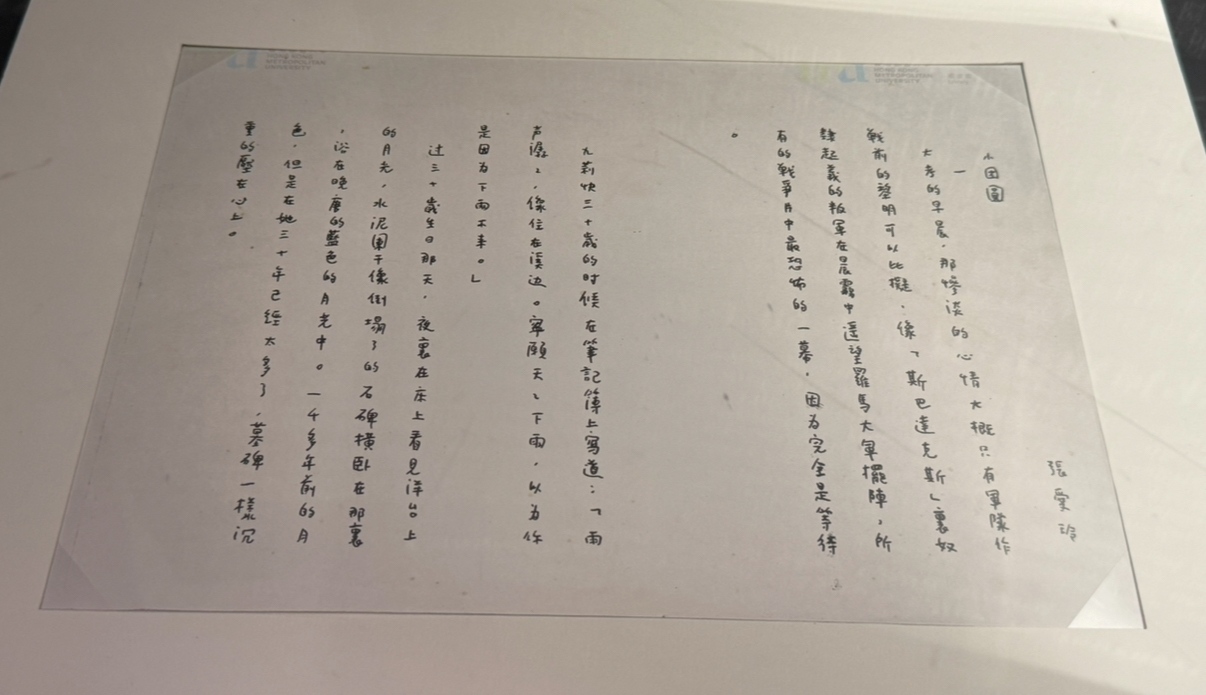 小团圓
張愛玲
一
大考的早晨，那慘淡的心情大概只有軍隊作
戰前的黎明可以比擬，像「斯巴達克斯」裏奴
隸起義的叛軍在晨霧中遥望羅馬大軍擺陣，所
有的戰爭片中最恐怖的一幕，因为完全是等待
。
九莉快三十歲的时候在筆記簿上寫道：「雨
声潺々，像住在溪边。寧願天々下雨，以为你
是因为下雨不來。」
过三十歲生日那天，夜裏在床上看見洋台上
的月光，水泥闌干像倒塌了的石碑横臥在那裏
，浴在晚唐的藍色的月光中。一千多年前的月
色，但是在她三十年已經太多了，墓碑一樣沉
重的壓在心上。
2
HONG KONG
METROPOLITAN
UNIVERSITY
HONG KONG
METROPOLITAN
UNIVERSITY